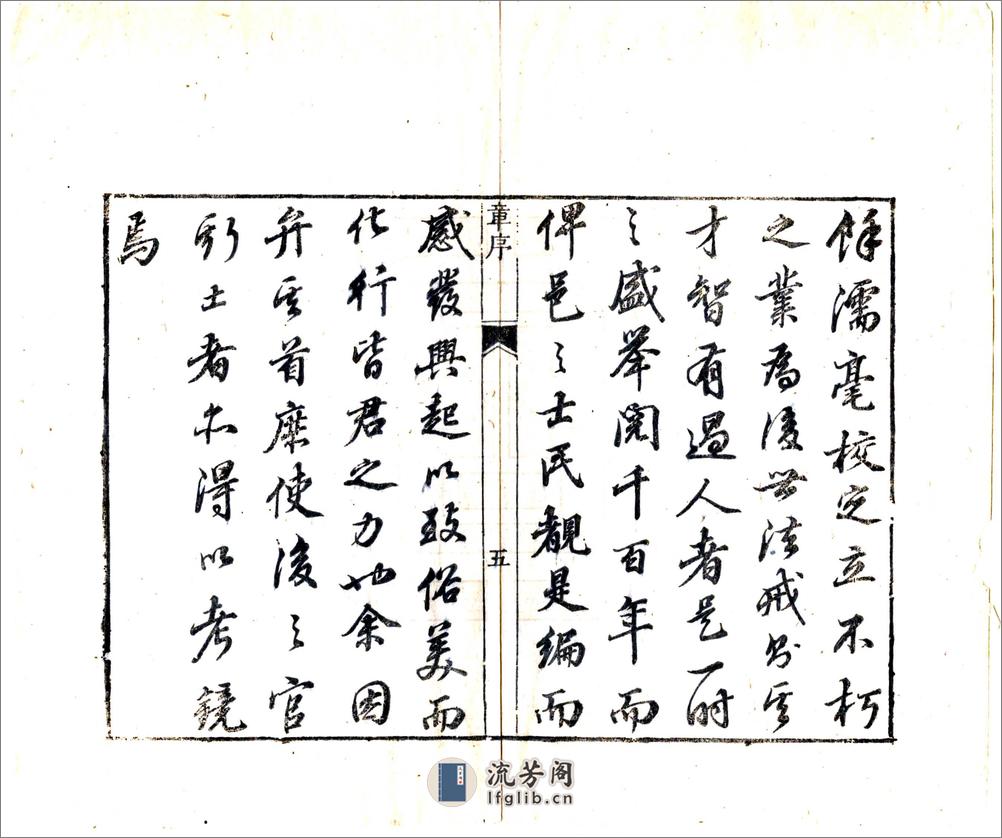 餘濡毫校定立不朽
之業為後世法戒則其
才智有過人者是一時
之盛舉閱千百年而
俾邑之士民覩是編而
章序
五
感發興起以致俗美而
化行皆君之力也余因
弁其首庶使後之官
斯土者亦得以考鏡
焉
流芳阁
lfglib.cn